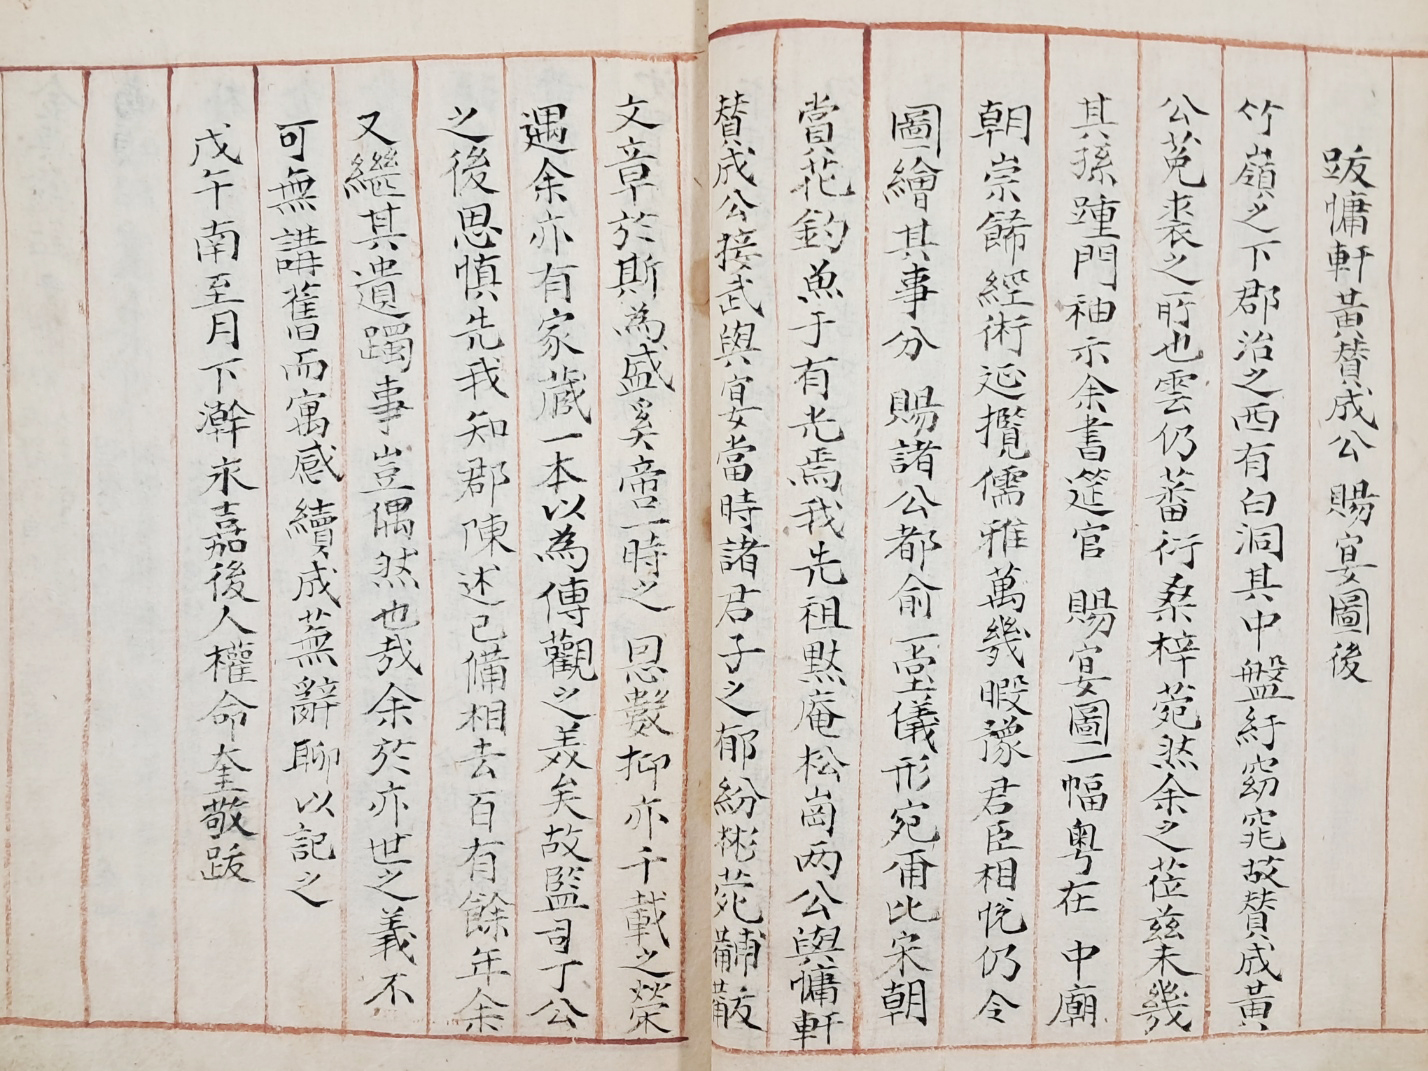 跋慵軒黃賛成公 賜宴圖後
竹嶺之下郡治之西有白洞其中盤紆窈窕故賛成黃
公菟裘之所也雲仍蕃衍桑梓菀然余之莅茲未幾
其孫踵門袖示余書筵官 賜宴圖二幅粤在 中廟
朝崇餙經術延攬儒雅萬幾暇豫君臣相悅仍令
圖繪其事分 賜諸公都俞一堂儀形宛甭比宋朝
賞花釣魚于有光焉我先祖默庵松崗两公與慵軒
賛成公接武與宴當時諸君子之郁紛彬菀黼黻
文章於斯為盛奚啻一時之 恩數抑亦千載之榮
遇余亦有家藏一本以為傳觀之美矣故監司丁公
之後思慎先我知郡陳述已備相去百有餘年余
又繼其遺躅事豈偶然也哉余於亦世之義不
可無講舊而寓感續成蕪辭聊以記之
戊午南至月下澣永嘉後人權命奎敬跋